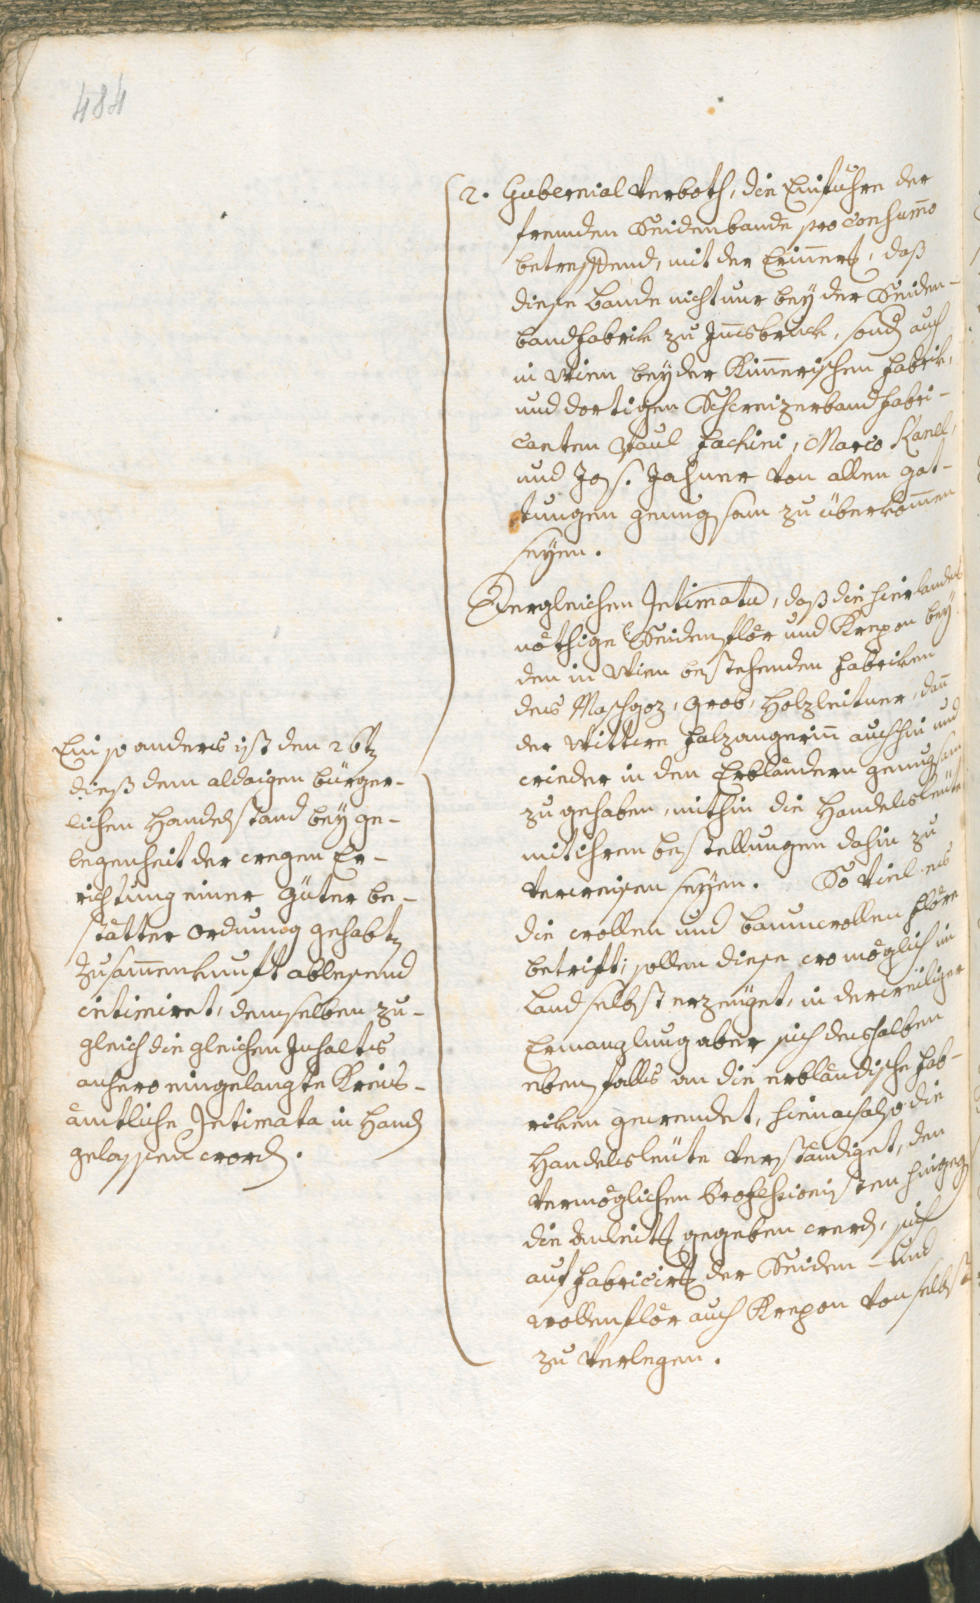 484
2. Gubernial Verboth, die Einfuhre der
fremden Seidenbande pro Consumo
betreffend, mit der Erinnerg, daß
diese Bande nicht nur bey der Seiden-
bandfabrik zu Innsbruck, sond auch
in Wien bey der Kinnerischen Fabrik,
und dortigen Schweizerbandfabri-
canten Paul Fachini, Marco Kanel,
und Jos. Jahner von allen gat-
tungen genugsam zu überkommen
seyen.
Dergleichen Intimata, daß die hierlandes
nöthige Seidenflör und Krepon bey
den in Wien bestehenden Fabriken
des Maschgoz, Grob, Holzleitner, dann
der Wittwe Falzangerinn auch hin und
wieder in den Erbländern genugsam
zu gehaben, mithin die Handelsleüte
mit ihren bestellungen dahin zu
verweisen seyen. So viel es
die wollen und baumwollen Flöre
betrift; sollen diese wo möglich im
Land selbst erzeüget, in derweiliger
Ermanglung aber sich deshalben
ebenfalls an die erbländische Fab-
riken gewendet, hienach also die
Handelsleüte verständiget, den
vermöglichen Professionisten hingeg
die Anleitg gegeben werd, sich
auf Fabricirg der Seiden- und
wollenflör auch Krepon von selbst
zu verlegen.
Ein so anders ist den 26tn
dieß dem aldaigen bürger-
lichen Handelstand bey ge-
legenheit der wegen Er-
richtung einer Güter be-
stätter Ordnung gehabtn
Zusammenkunft ablesend
intimiret, demselben zu-
gleich die gleichen Inhaltes
anhero eingelangte Kreis-
ämtliche Intimata in Hand
gelassen word.